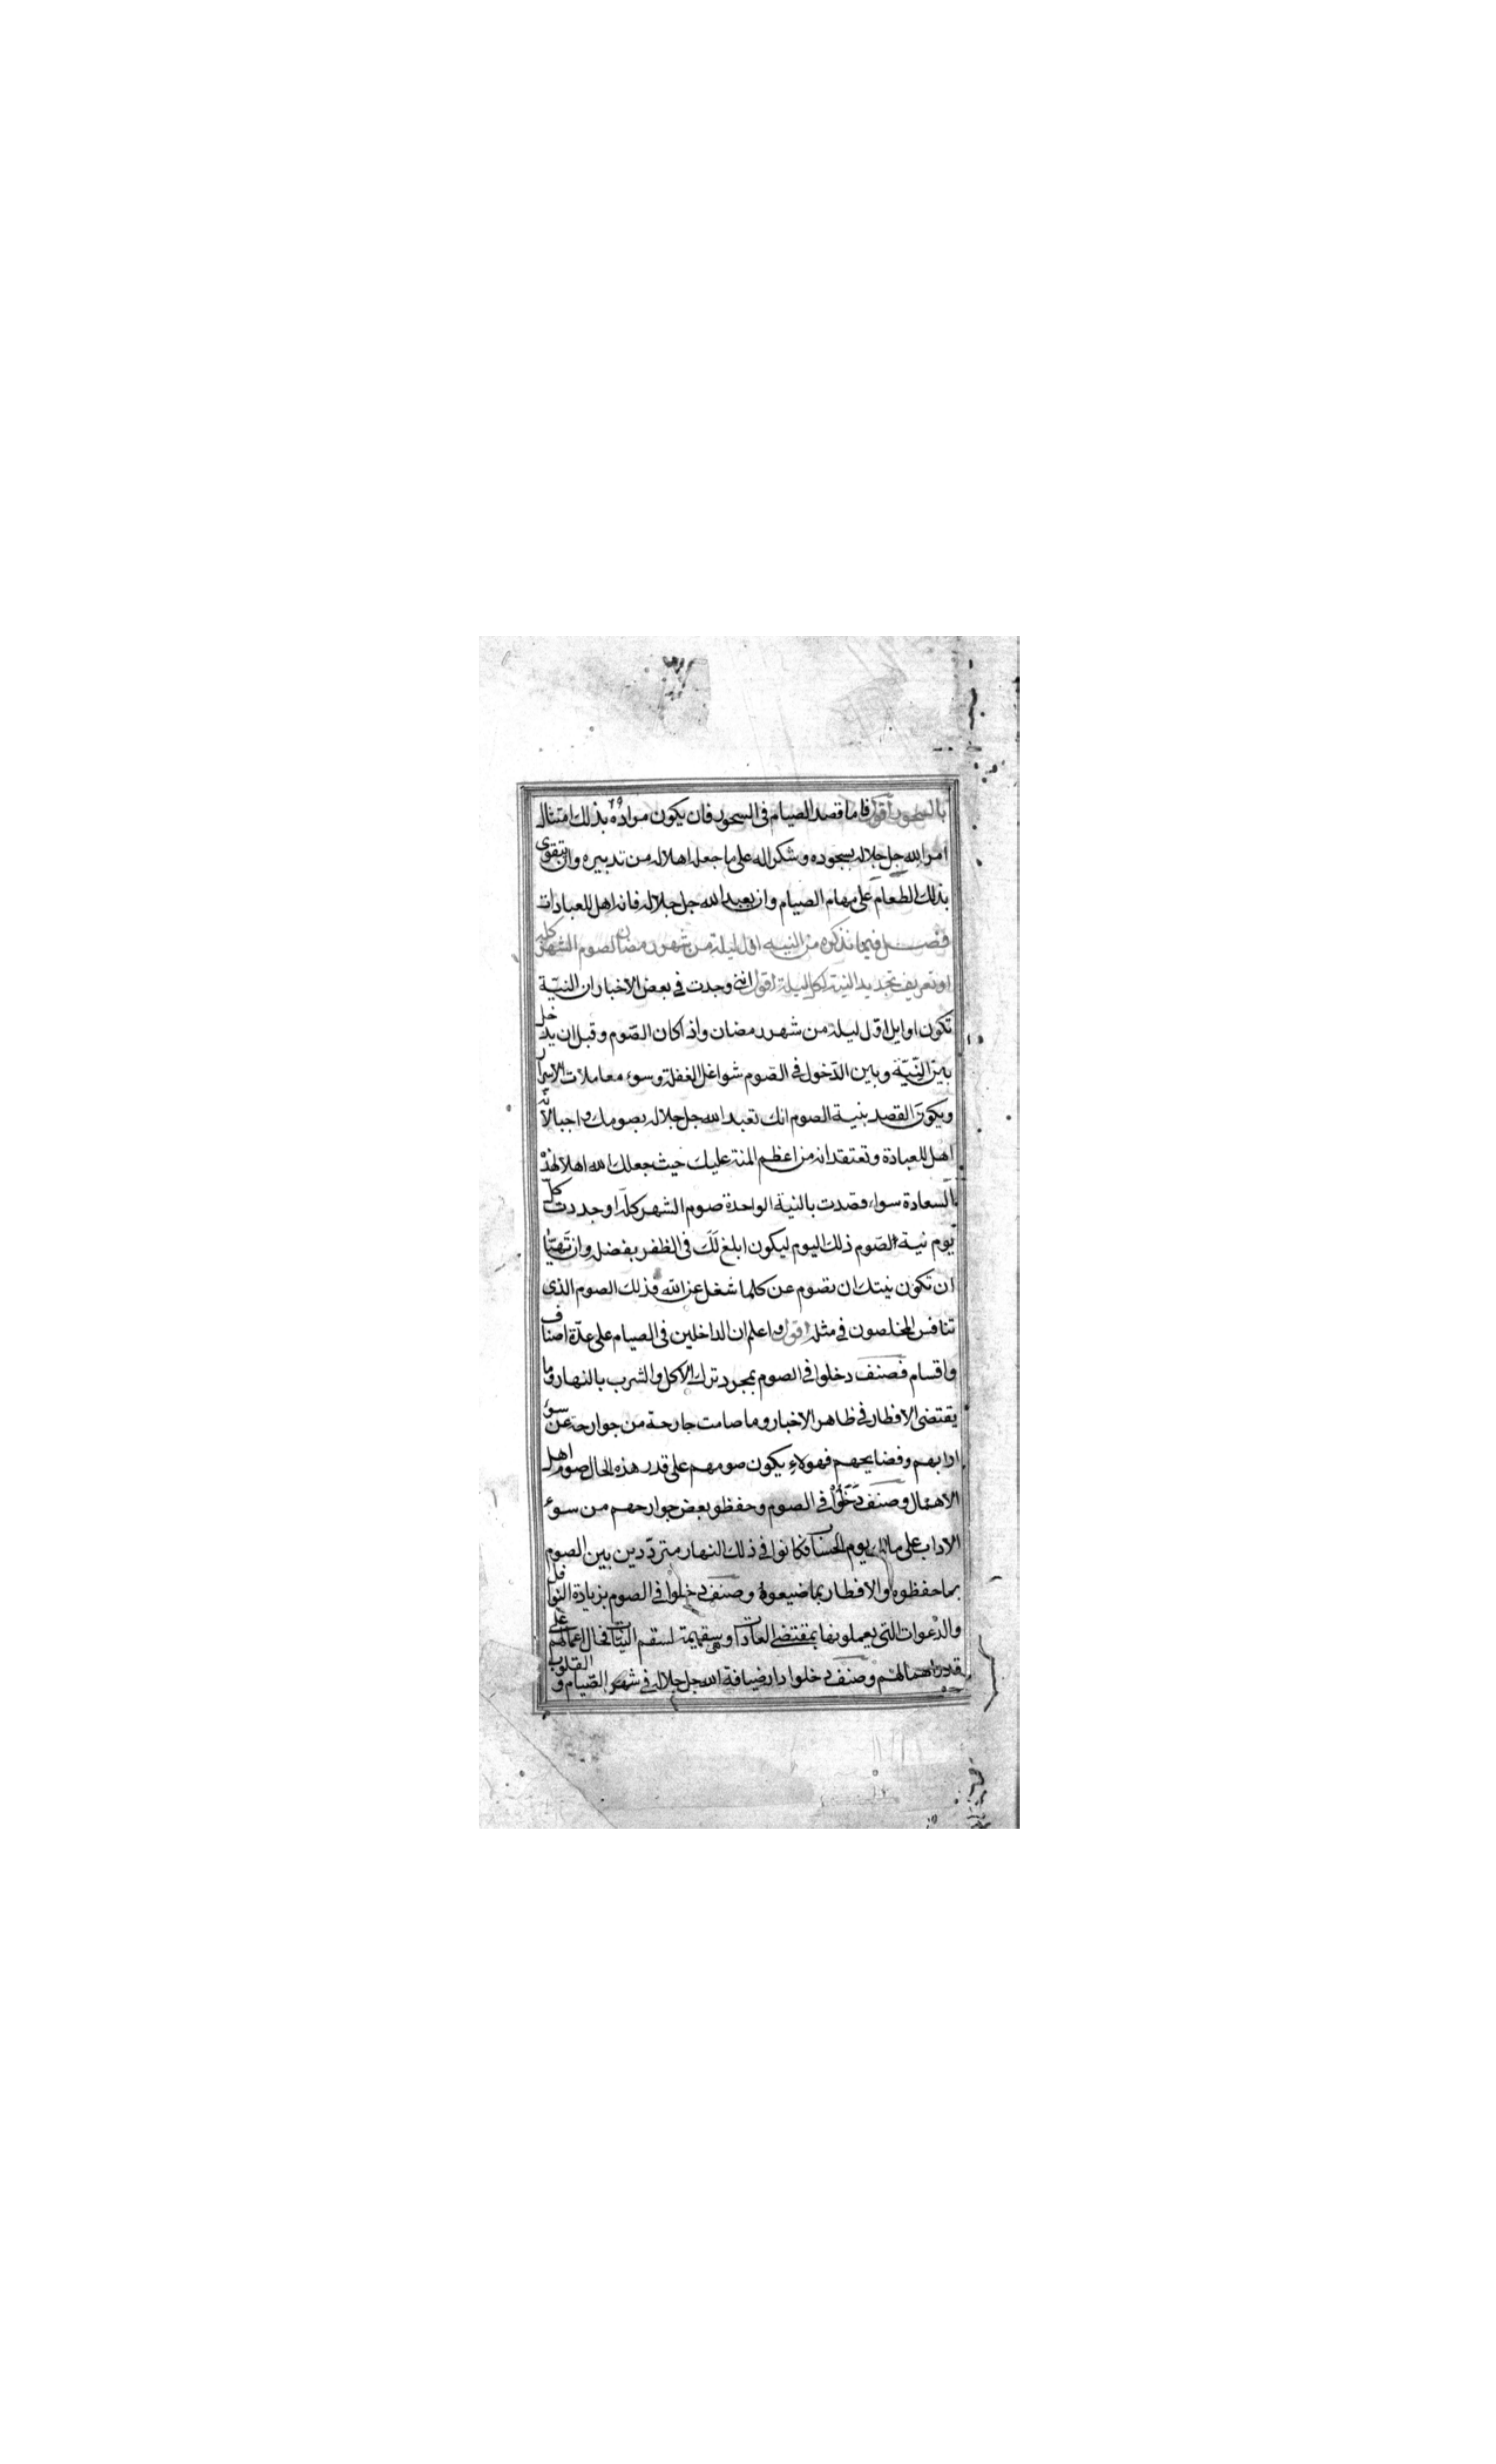 بالسحور اقول فاما قصد الصيام فى السحور فان يكون مراده بذلك امتثال
امر الله جل جلاله بسحوره وشكرا له على ما جعله اهلا له من تدبيره وان يتقوى
بذلك الطعام على مهام الصيام وان يعبد الله جل جلاله فانه اهل للعبادات
فصل فيما نذكره من النيه اول ليلة من شهر رمضان لصوم الشهر كله
او تعريف تجديد النية لكل ليلة اقول اننى وجدت فى بعض الاخبار ان النيّة
تكون اوايل اول ليلة من شهر رمضان واذا كان الصّوم وقبل ان يدخل
بين النيّة وبين الدّخول فى الصّوم شواغل الغفلة وسوء معاملات الاسرار
ويكون القصد بنية الصوم انك تعبد الله جل جلاله بصومك واجبا لانّه
اهل للعبادة وتعتقد انه من اعظم المنة عليك حيث جعلك الله اهلا لهذه
السعادة سواء قصدت بالنية الواحدة صوم الشهر كلّه او جددت كلّ
يوم نية الصّوم ذلك اليوم ليكون ابلغ لك فى الظفر بفضله وان تهيّا
ان تكون نيتك ان تصوم عن كلما شغل عن الله فذلك الصوم الذى
تنافس المخلصون فى مثله اقول واعلم ان الداخلين فى الصيام على عدّة اصناف
واقسام فصنف دخلوا فى الصوم بمجرد ترك الاكل والشرب بالنهار وما
يقتضى الافطار فى ظاهر الاخبار وما صامت جارحة من جوارحه عن سوء
ادابهم وفضايحهم فهولاء يكون صومهم على قدر هذه الحال صوم اهل
الاهمال وصنف دخلوا فى الصوم وحفظو بعض جوارحهم من سوء
الاداب على مالك يوم الحساب فكانوا فى ذلك النهار متردّدين بين الصوم
بما حفظوه والافطار بما ضيعوه وصنف دخلوا فى الصوم بزيادة النوافل
والدّعوات التى يعملونها بمقتضى العادات وهى سقيمة لسقم النيّات فحال اعمالهم على
قدر اهمالهم وصنف دخلوا دار ضيافة الله جل جلاله فى شهر الصّيام و القلوب